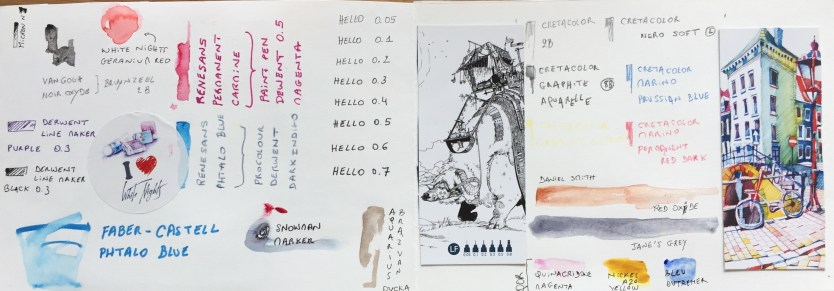 MICRON N1
WHITE NIGHTS
GERANIUM RED
VAN GOGH
NOIR OXYDE
BRUYNZEEL
2B
DERWENT
LINE MAKER
PURPLE 0.3
DERWENT
LINE MAKER
BLACK 0.3
I
White Nights
RENESANS
PERMANENT
CARMINE
PAINT PEN
DEWENT 0.5
MAGENTA
RENESANS
PHTALO BLUE
PROCOLOUR
DERWENT
DARK INDIGO
HELLO 0.05
HELLO 0.1
HELLO 0.2
HELLO 0.3
HELLO 0.4
HELLO 0.5
HELLO 0.6
HELLO 0.7
FABER-CASTELL
PHTALO BLUE
SNOWMAN
MARKER
AQUARIUS
BRAZ VAN
DYCKA
LF
CRETACOLOR
2B
CRETACOLOR
NERO SOFT
CRETACOLOR
GRAPHITE
AQUARELLE
8B
CRETACOLOR
MARINO
PRUSSIAN BLUE
CRETACOLOR
MARINO
PERMANENT
RED DARK
DANIEL SMITH
RED OXIDE
JANE'S GREY
QUINACRIDONE
MAGENTA
NICKEL
AZO
YELLOW
BLEU
OUTREMER